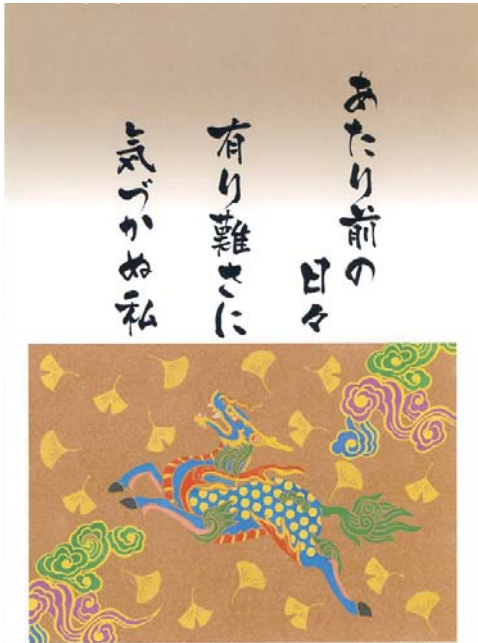 あたり前の
日々
有り難さに
気づかぬ私